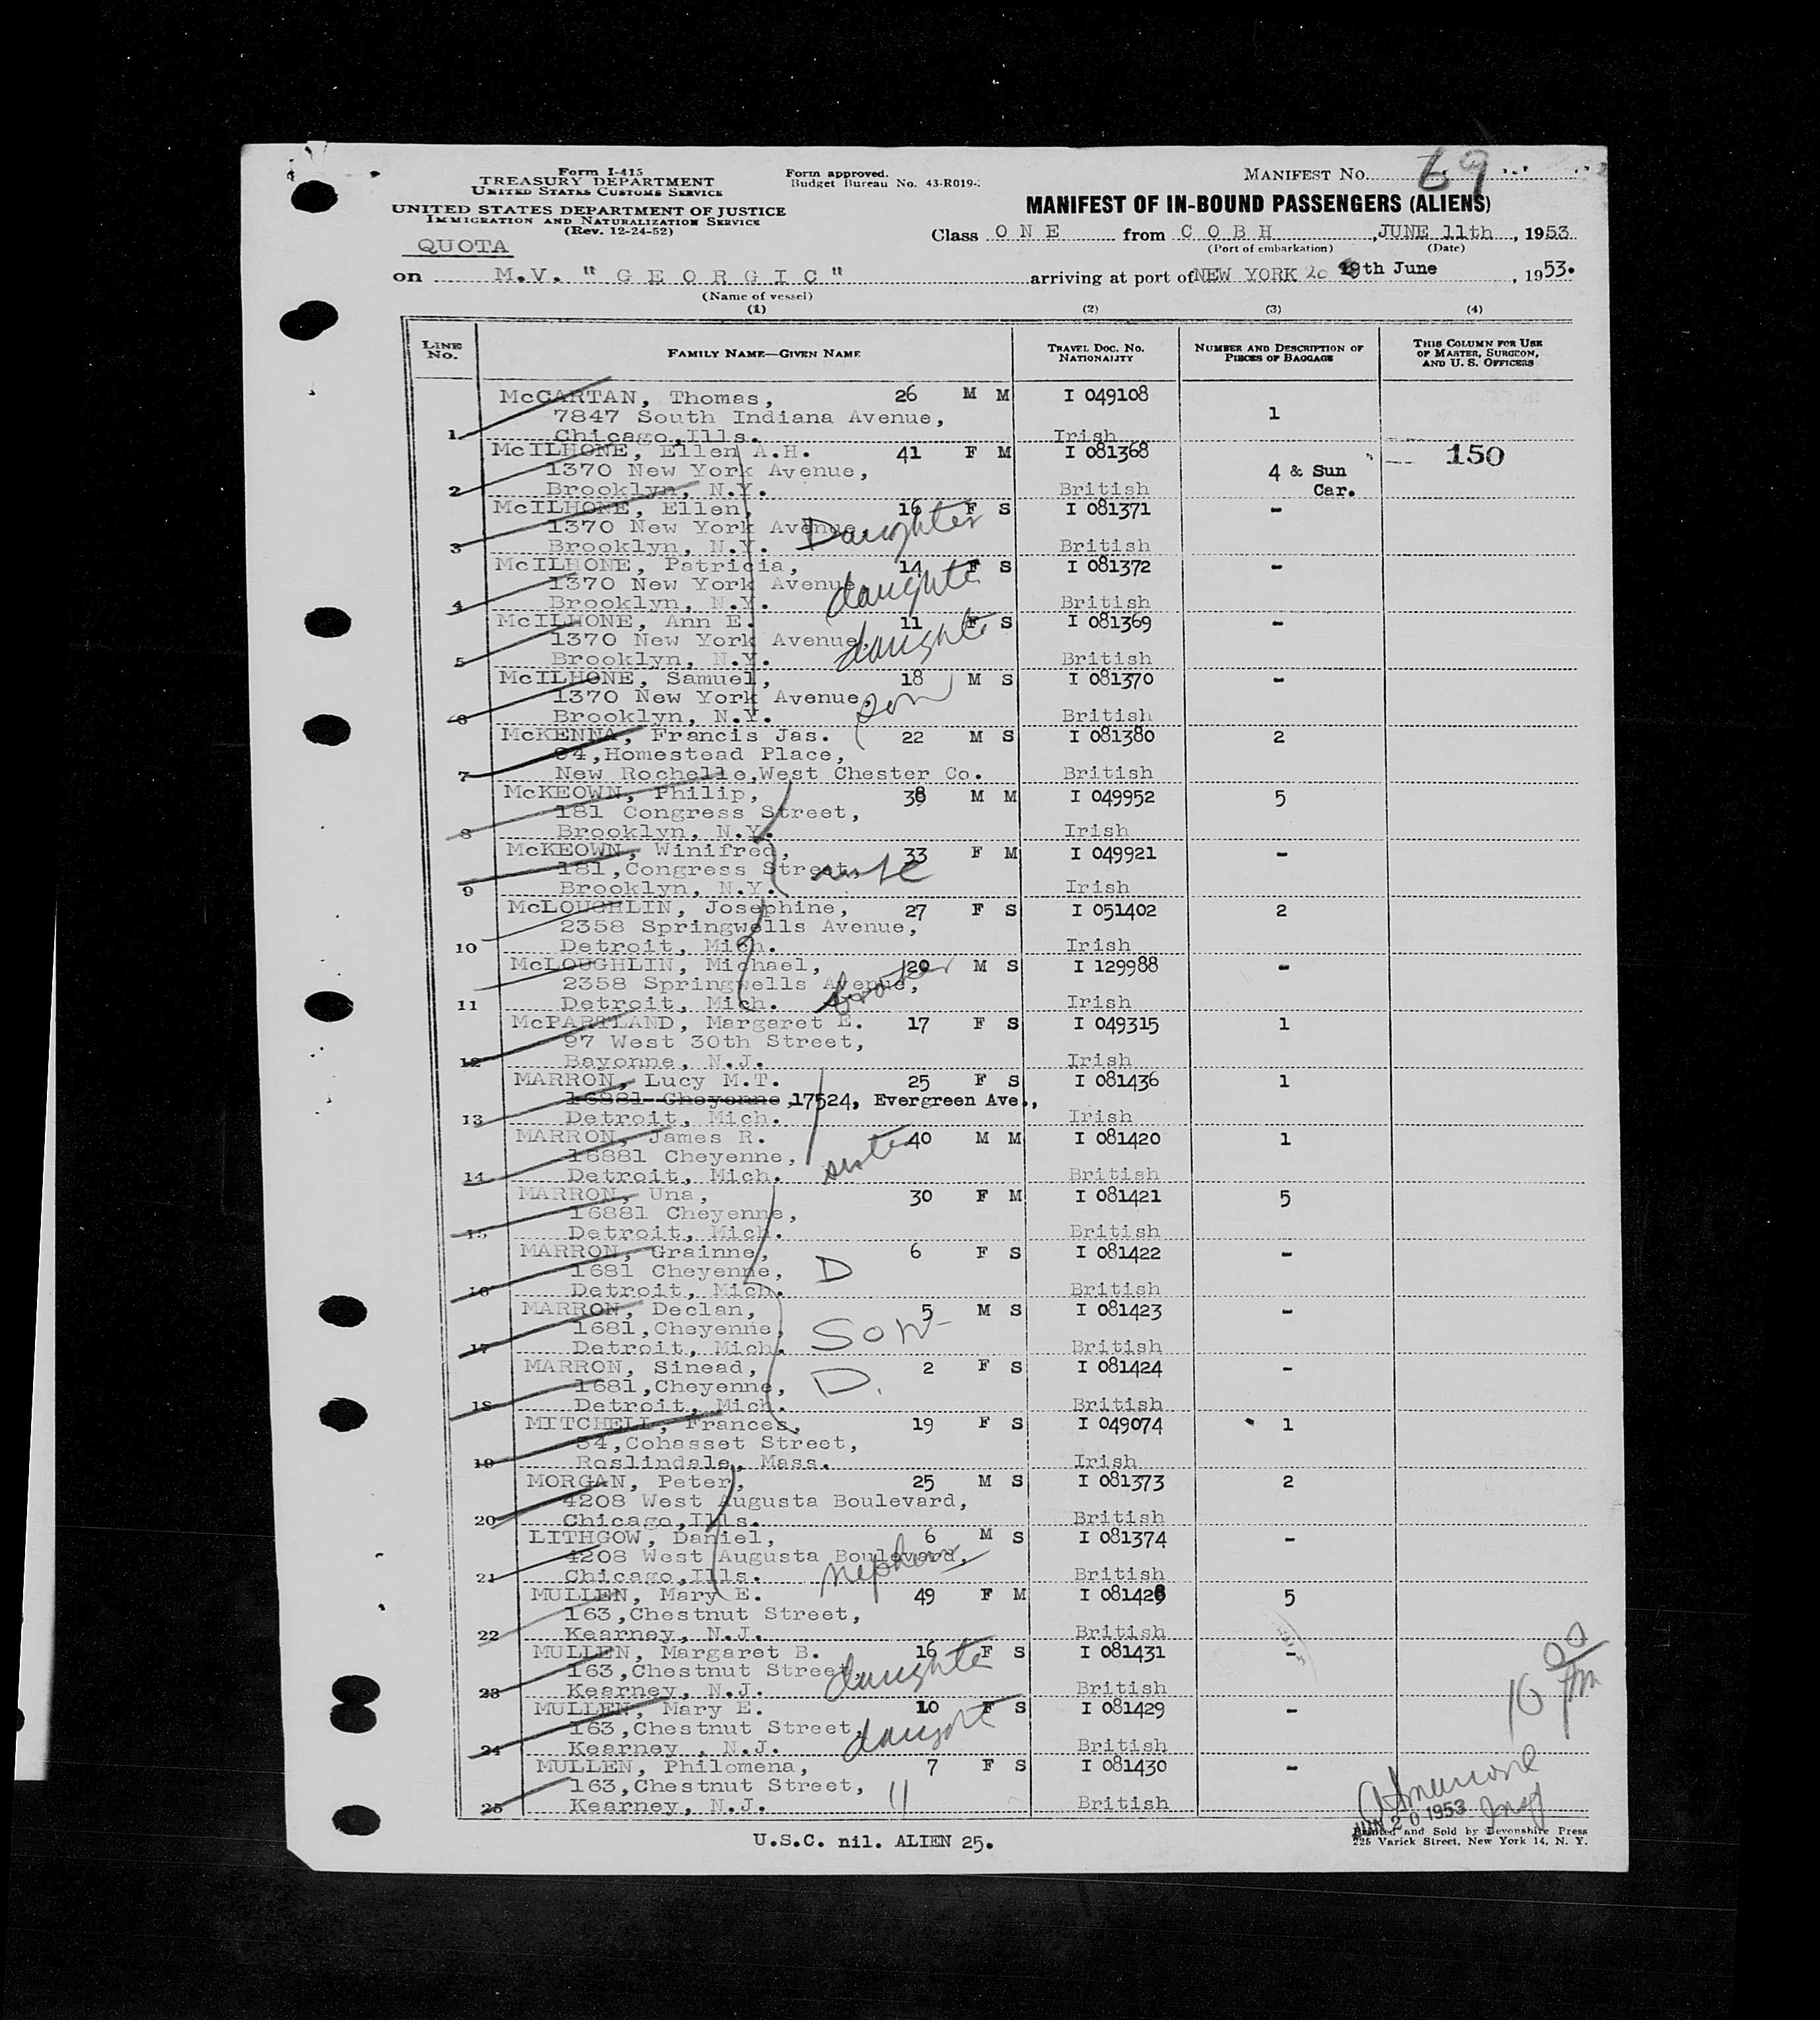 Form I-415
TREASURY DEPARTMENT
UNITED STATES CUSTOMS SERVICE
UNITED STATES DEPARTMENT OF JUSTICE
IMMIGRATION AND NATURALIZATION SERVICE
(Rev. 12-24-52)
Form approved.
Budget Bureau No. 43-R019-
MANIFEST NO. 69
MANIFEST OF IN-BOUND PASSENGERS (ALIENS)
QUOTA
Class ONE from COBH, JUNE 11th, 1953
(Port of embarkation) (Date)
on M.V. "GEORGIC" arriving at port of NEW YORK 20 19th June, 1953.
(Name of vessel)
(1) (2) (3) (4)
LINE NO. FAMILY NAME—GIVEN NAME TRAVEL DOC. NO. NATIONALITY NUMBER AND DESCRIPTION OF PIECES OF BAGGAGE THIS COLUMN FOR USE OF MASTER, SURGEON, AND U. S. OFFICERS
McCARTAN, Thomas, 26 M M I 049108
7847 South Indiana Avenue, 1
1 Chicago,Ills. Irish
McILHONE, Ellen A.H. 41 F M I 081368 150
1370 New York Avenue, 4 & Sun
2 Brooklyn, N.Y. British Car.
McILHONE, Ellen, 16 F S I 081371 -
1370 New York Avenue Daughter
3 Brooklyn, N.Y. British
McILHONE, Patricia, 14 F S I 081372 -
1370 New York Avenue daughte
4 Brooklyn, N.Y. British
McILHONE, Ann E. 11 F S I 081369 -
1370 New York Avenue, daughte
5 Brooklyn, N.Y. British
McILHONE, Samuel, 18 M S I 081370 -
1370 New York Avenue, son
6 Brooklyn, N.Y. British
McKENNA, Francis Jas. 22 M S I 081380 2
94,Homestead Place,
7 New Rochelle,West Chester Co. British
McKEOWN, Philip, 38 M M I 049952 5
181 Congress Street,
8 Brooklyn, N.Y. Irish
McKEOWN, Winifred, 33 F M I 049921 -
181,Congress Street,
9 Brooklyn, N.Y. Irish
McLOUGHLIN, Josephine, 27 F S I 051402 2
2358 Springwells Avenue,
10 Detroit, Mich. Irish
McLOUGHLIN, Michael, 20 M S I 129988 -
2358 Springwells Avenue, brother
11 Detroit, Mich. Irish
McPARTLAND, Margaret E. 17 F S I 049315 1
97 West 30th Street,
12 Bayonne, N.J. Irish
MARRON, Lucy M.T. 25 F S I 081436 1
16881 Cheyenne,17524, Evergreen Ave.,
13 Detroit, Mich. Irish
MARRON, James R. 40 M M I 081420 1
16881 Cheyenne, sister
14 Detroit, Mich. British
MARRON, Una, 30 F M I 081421 5
16881 Cheyenne,
15 Detroit, Mich. British
MARRON, Grainne, 6 F S I 081422 -
1681 Cheyenne, D
16 Detroit, Mich. British
MARRON, Declan, 5 M S I 081423 -
1681,Cheyenne, Son
17 Detroit, Mich. British
MARRON, Sinead, 2 F S I 081424 -
1681,Cheyenne, D.
18 Detroit, Mich. British
MITCHELL, Frances, 19 F S I 049074 1
34,Cohasset Street,
19 Roslindale, Mass. Irish
MORGAN, Peter, 25 M S I 081373 2
4208 West Augusta Boulevard,
20 Chicago,Ills. British
LITHGOW, Daniel, 6 M S I 081374 -
4208 West Augusta Boulevard,
21 Chicago,Ills. nephew British
MULLEN, Mary E. 49 F M I 081428 5
163,Chestnut Street,
22 Kearney, N.J. British
MULLEN, Margaret B. 16 F S I 081431 -
163,Chestnut Street, daughte
23 Kearney, N.J. British
MULLEN, Mary E. 10 F S I 081429 -
163,Chestnut Street, daught
24 Kearney , N.J. British
MULLEN, Philomena, 7 F S I 081430 -
163,Chestnut Street, "
25 Kearney, N.J. British
10 00 PM
JUN 20 1953 Insp
U.S.C. nil. ALIEN 25.
Printed and Sold by Devonshire Press
225 Varick Street, New York 14, N. Y.